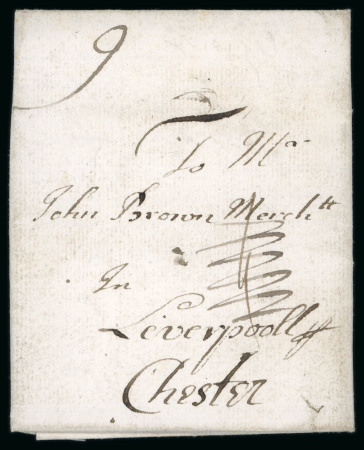 9
To Mr
John Brown Merchtt
In
Liverpooll
Chester